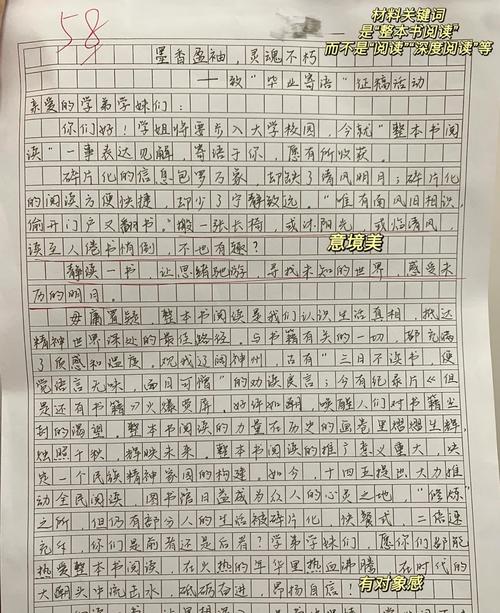 58
材料关键词
是“整本书阅读”
而不是“阅读”“深度阅读”等
墨香盈袖，灵魂不朽
——致“毕业寄语”征稿活动
亲爱的学弟学妹们：
你们好！学姐将要步入大学校园，今就“整本书阅
读”一事表达见解，寄语于你，愿有所收获。
碎片化的信息包罗万象，却缺了清风明月；碎片化
的阅读方便快捷，却少了宁静致远。“唯有南风旧相识，
偷开门户又翻书。”搬一张长椅，或沐阳光，或临清风，
读至人倦书脊倒，不也有趣？
意境美
静读一书，让思绪驰游，寻找未知的世界，感受未
历的明月。
毋庸置疑，整本书阅读是我们认识生活真相，抵达
精神世界深处的最佳路径。与书籍有关的一切，都充满
了质感和温度。观我辽阔神州，古有“三日不读书，便
觉语言无味，面目可憎”的劝读良言；今有纪录片《但
是还有书籍》火爆荧屏，好评如潮，唤醒人们对书籍尘
封的渴望。整本书阅读的力量在历史的画卷里熠熠生辉，
烛照千秋，辉映未来。整本书阅读的推广意义重大，块
是一个民族精神家园的构建。如今，十四五提出大力推
动全民阅读，图书馆日益成为众人的心灵之地，“修炼”
之所，但仍有部分人的生活被碎片化，快餐式，二倍速
充斥，你们是前者还是后者？学弟学妹们，愿你们都能
热爱整本书阅读，在火热的年华里热血沸腾，在时代的
大潮头中流击水，砥砺奋进，昂扬自信！
有对象感